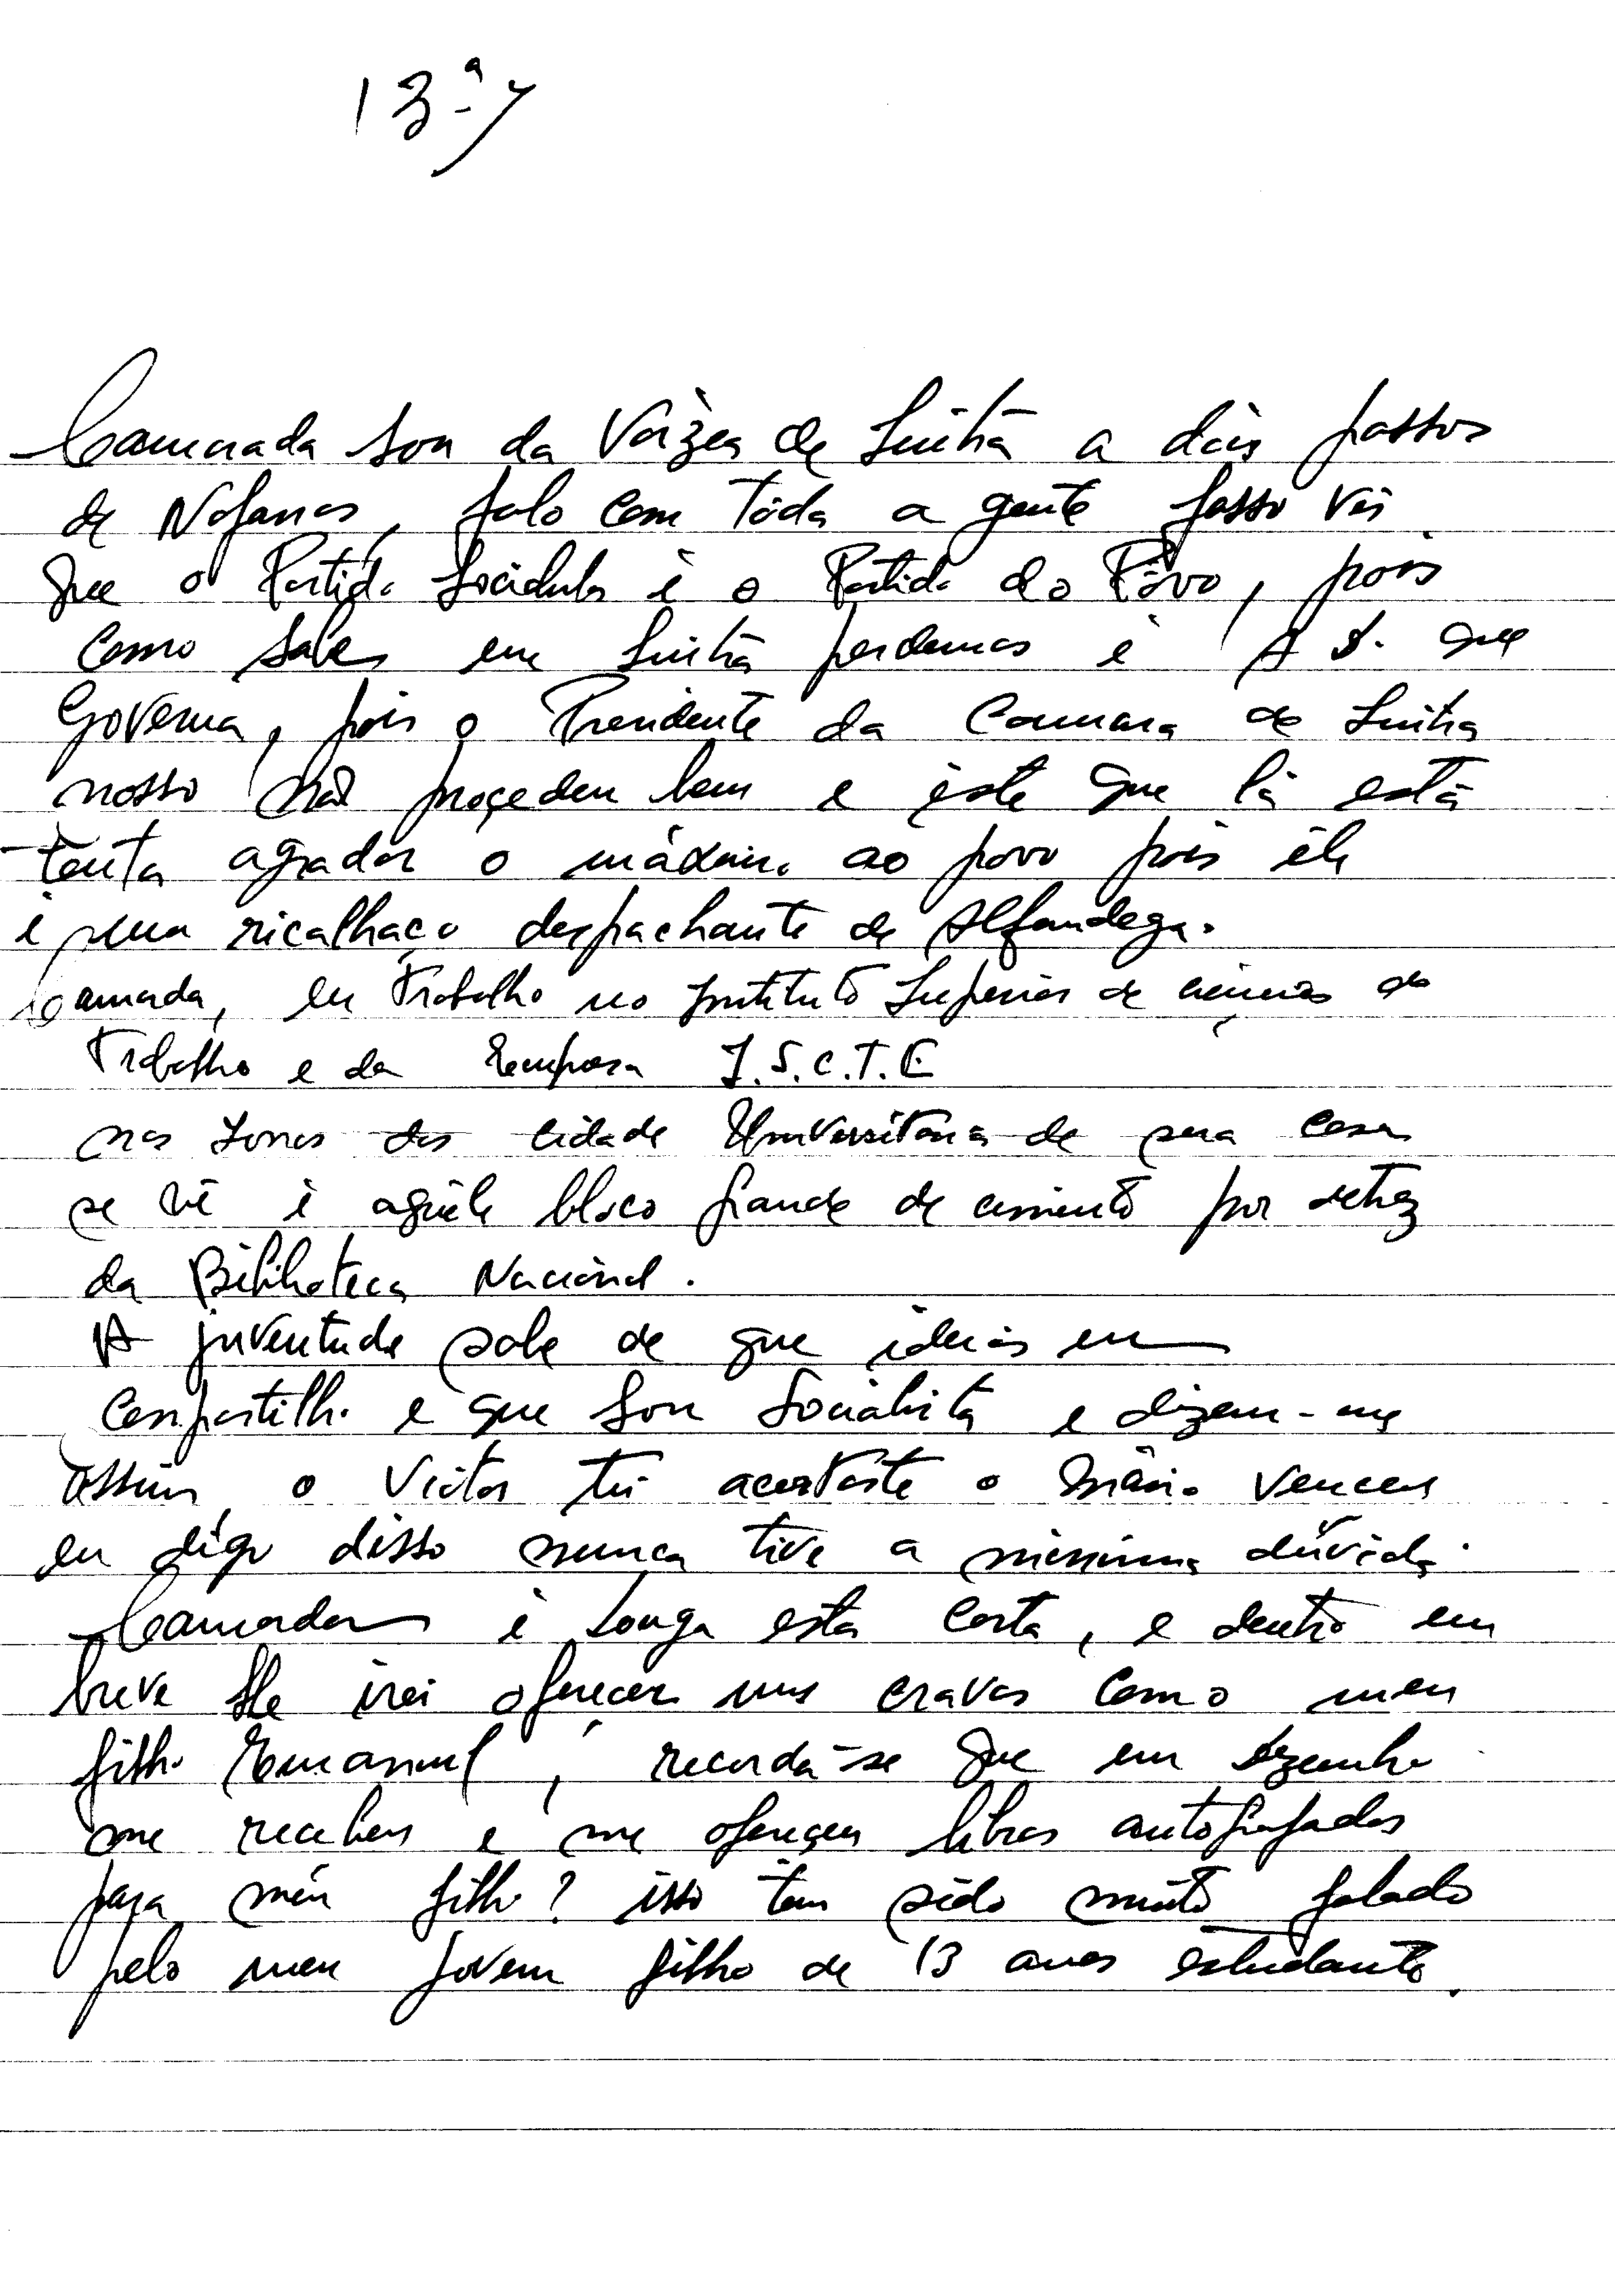 13ª
Camarada sou da Várzea de Sintra a dois passos
de Nafarros, falo com tôda a gente fasso vêr
que o Partido Socialista é o Partido do Pôvo, pois
como sabe em Sintra perdemos é A D. que
Governa, pois o Presidente da Camara de Sintra
nosso não proçedeu bem e êste que lá está
tenta agradar o máximo ao povo pois êle
é um ricalhaço despachante de Alfandega.
Camarada, eu trabalho no Instituto Superior de ciencias do
Trabalho e da Empresa I.S.C.T.E
nas zonas da cidade Universitária de sua casa
se vê é aquêle bloco grande de cimento por detrez
da Biblihoteca Nacional.
A juventude sabe de que ideias eu
compartilho e que sou Socialista e dizem-me
assim, o Victor tu acertaste o Mário venceu
eu digo disso nunca tive a minima dúvida.
Camarada é longa esta carta, e dentro em
breve lhe irei oferecer uns cravos como meu
filho Emanuel, recorda-se que em dezembro
me recebeu e me ofereçeu libros autografados
para meu filho? isso tem sido muito falado
pelo meu jovem filho de 13 anos estudante.